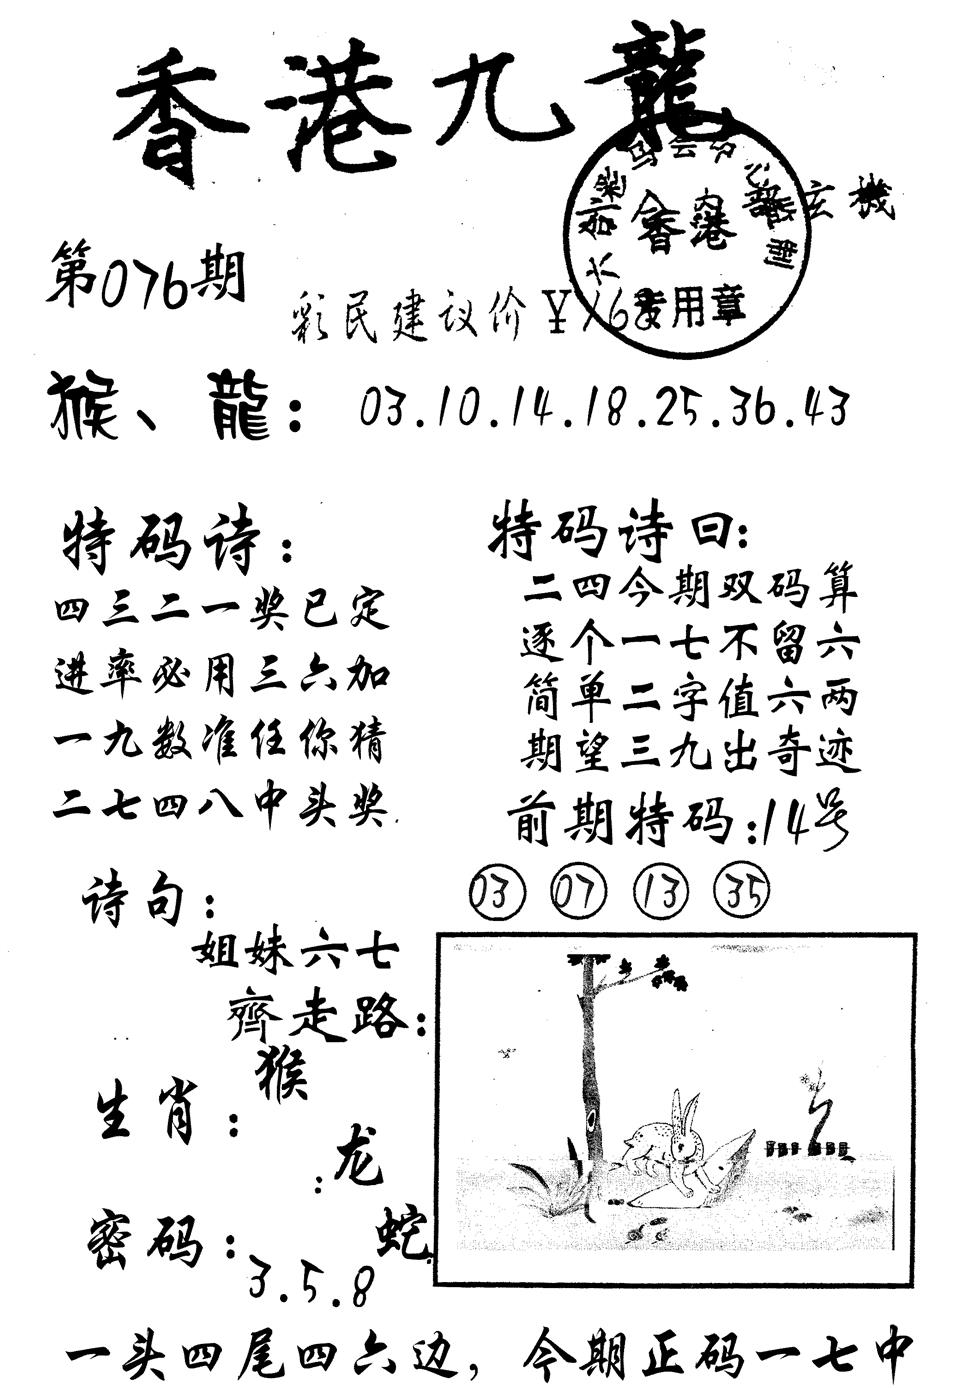 香港九龍
六合彩马会中心 制
香港
专用章
玄機
第076期
彩民建议价￥168
猴、龍：03.10.14.18.25.36.43
特码诗：
四三二一奖已定
进率必用三六加
一九数准任你猜
二七四八中头奖
特码诗曰：
二四今期双码算
逐个一七不留六
简单二字值六两
期望三九出奇迹
前期特码：14号
03 07 13 35
诗句：
姐妹六七
齊走路：
生肖：猴
龙
蛇
密码：
3.5.8
一头四尾四六边，今期正码一七中